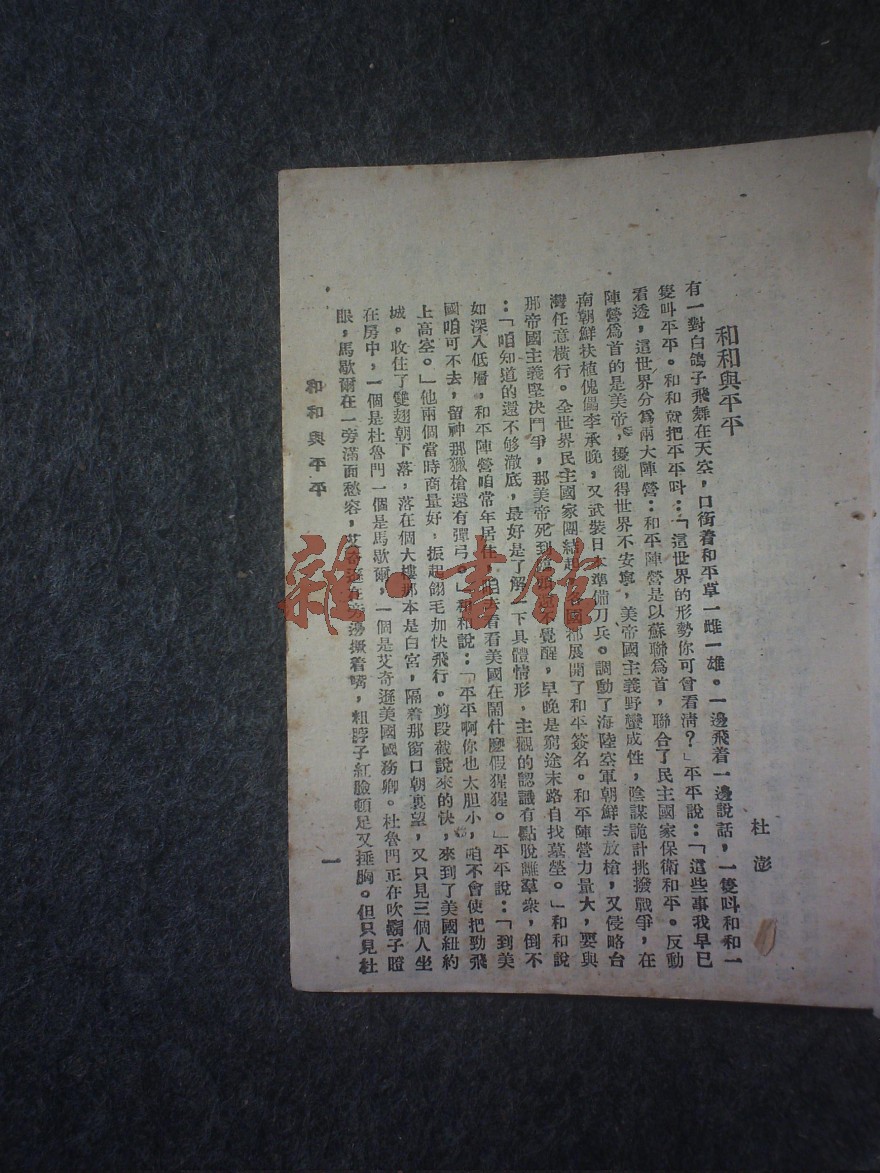 和和與平平
杜澎
有一對白鴿子飛舞在天空，口銜着和平草一雌一雄。一邊飛着一邊說話，一隻叫和和一
隻叫平平。和和就把平平叫：「這世界的形勢你可曾看淸？」平平說：「這些事我早已
看透，這世界分爲兩大陣營：和平陣營是以蘇聯爲首，聯合了民主國家保衛和平。反動
陣營爲首的是美帝，擾亂得世界不安寧，美帝國主義野蠻成性，陰謀詭計挑撥戰爭，在
南朝鮮扶植傀儡李承晚，又武裝日本準備刀兵。調動了海陸空軍朝鮮去放槍，又侵略台
灣任意橫行。全世界民主國家團結起 各國都展開了和平簽名。和平陣營力量大，要與
那帝國主義堅决鬥爭，那美帝死到 覺醒，早晚是窮途末路自找墓塋。」和和說
：「咱知道的還不够澈底，最好是了解一下具體情形，主觀的認識有點脫離羣衆，倒不
如深入低層，和平陣營咱常年居住，咱去看看美國在鬧什麽假猩猩。」平平說：「到美
國咱可不去，留神那獵槍還有彈弓。」和和說：「平平啊你也太胆小，咱不會使把勁飛
上高空。」他兩個當時商量好，振起翎毛加快飛行。剪段截說來的快，來到了美國紐約
城。收住了雙翅朝下落，落在個大樓那本是白宮，隔着那窗口朝裏望，又只見三個人坐
在房中，一個是杜魯門一個是馬歇爾，一個是艾奇遜美國國務卿。杜魯門正在吹鬍子瞪
眼，馬歇爾在一旁滿面愁容，艾奇遜在旁邊撅着嘴，粗脖子紅臉頓足又捶胸。但只見杜
和和與平平
一
雜·書館